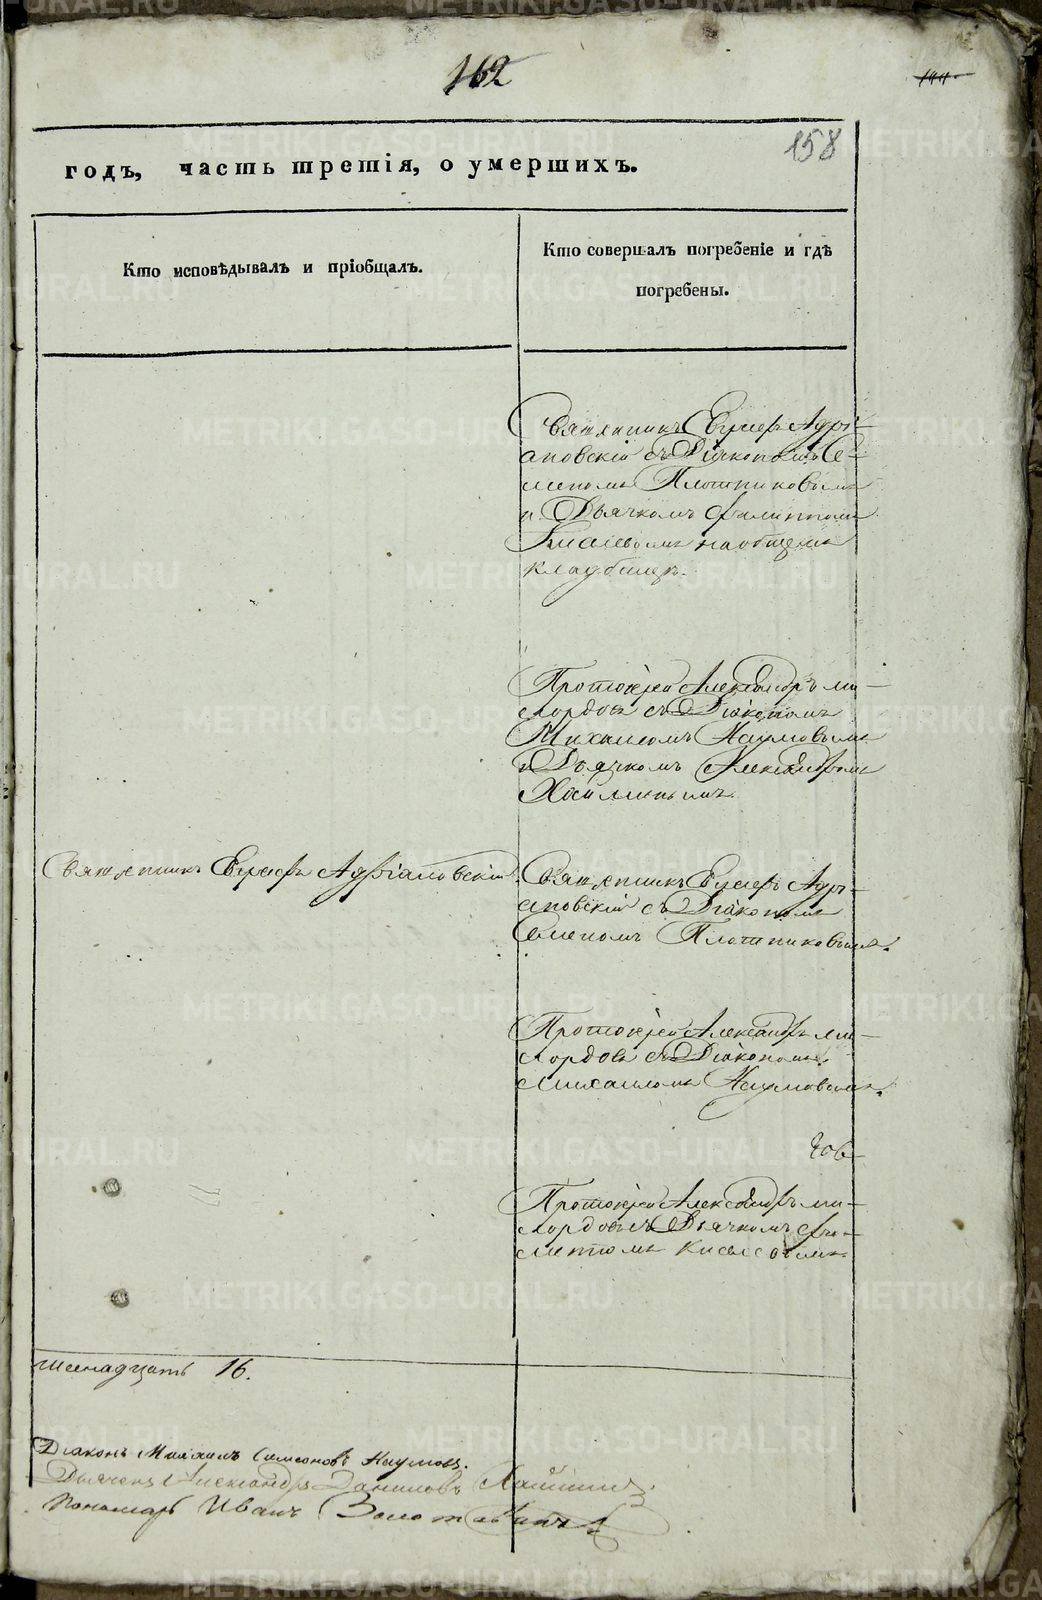 162
158
годъ, часть третія, о умершихъ.
Кто исповѣдывалъ и пріобщалъ.
Кто совершалъ погребеніе и гдѣ
погребены.
Священникъ Адрі-
ановскій съ Діакономъ Се-
меномъ Плотниковымъ
и Дьячкомъ
на общемъ
кладбищѣ.
Протоіерей Александръ Ми-
лордовъ съ Діакономъ
Михаиломъ Наумовымъ
и Дьячкомъ Александромъ
Священникъ Адріановскій
Священникъ Адрі-
ановскій съ Діакономъ
Семеномъ Плотниковымъ.
Протоіерей Александръ Ми-
лордовъ съ Діакономъ
Михаиломъ Наумовымъ.
Протоіерей Александръ Ми-
лордовъ съ Дьячкомъ
Киселевымъ
шеснадцать 16.
Діаконъ Михаилъ Симеоновъ Наумовъ.
Дьячекъ Александръ Даниловъ
Пономарь Иванъ
METRIKI.GASO-URAL.RU